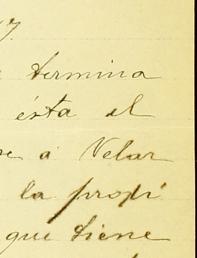 termina
ésta al
a Velar
la propi
que tiene